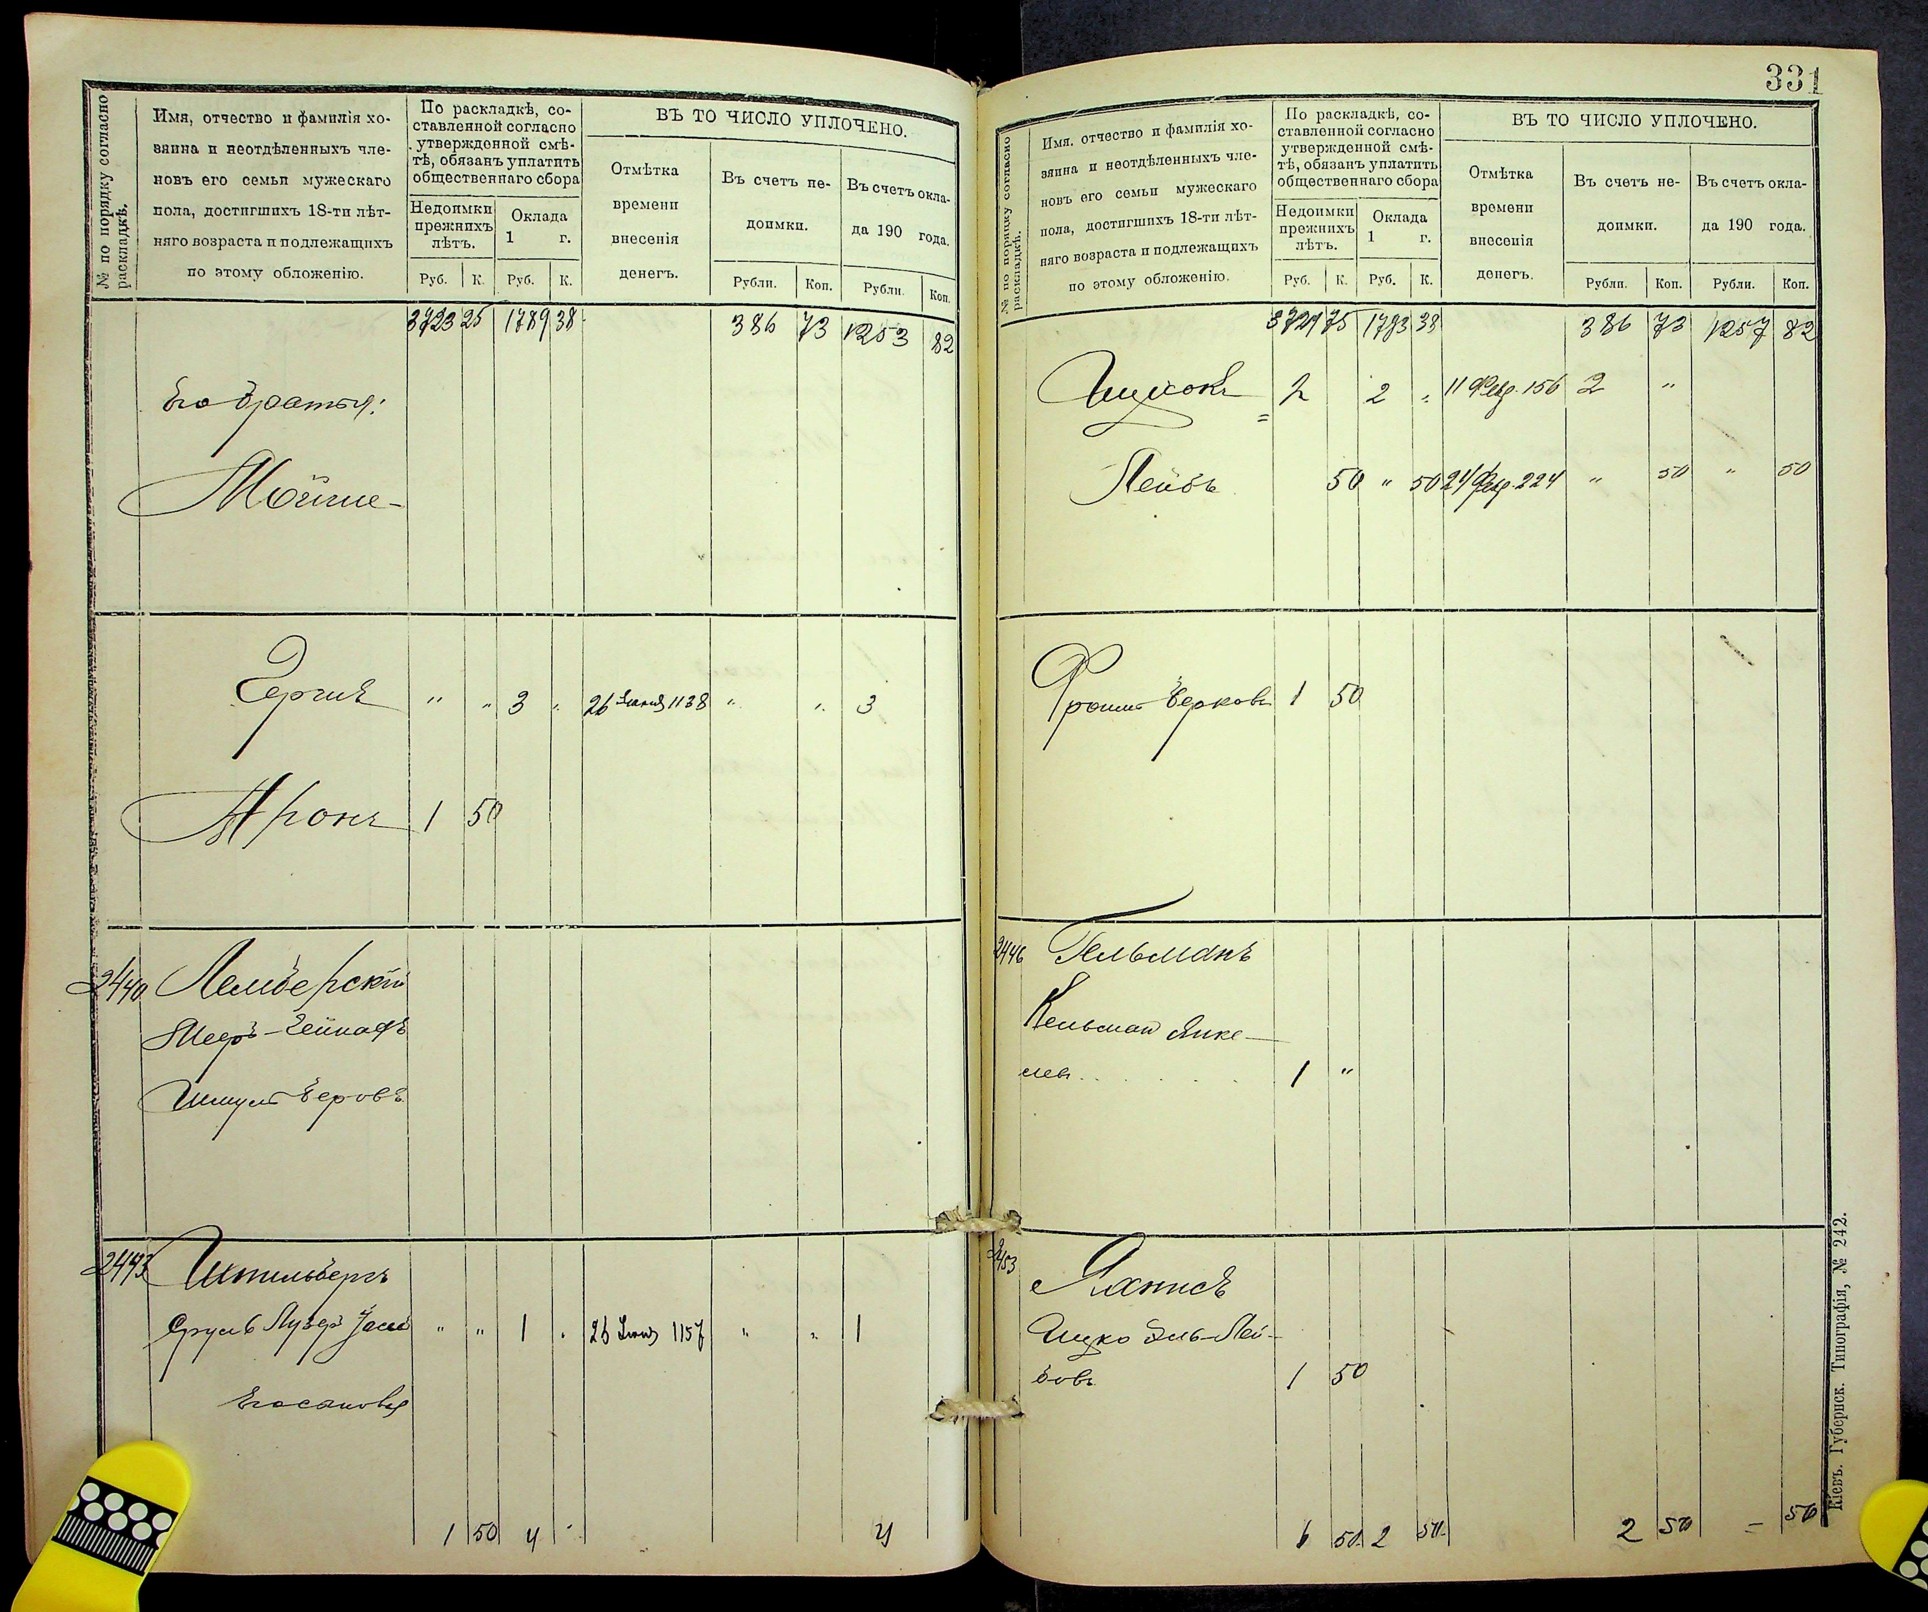 331
№ по порядку согласно раскладкѣ.
Имя, отчество и фамилія хо-
зяина и неотдѣленныхъ чле-
новъ его семьи мужескаго
пола, достигшихъ 18-ти лѣт-
няго возраста и подлежащихъ
по этому обложенію.
По раскладкѣ, со-
ставленной согласно
утвержденной смѣ-
тѣ, обязанъ уплатить
общественнаго сбора
Недоимки
прежнихъ
лѣтъ.
Оклада
1 г.
Руб. К. Руб. К.
ВЪ ТО ЧИСЛО УПЛОЧЕНО.
Отмѣтка
времени
внесенія
денегъ.
Въ счетъ не-
доимки.
Въ счетъ окла-
да 190 года.
Рубли. Коп. Рубли. Коп.
3723 25 1789 38 386 73 1253 82
Его братья:
Мойше
" " 3 " 26 1138 " " 3
Аронъ 1 50
2440 Лемберскій
Шмуль Беровъ
2443 Шпильбергъ
Сруль " " 1 " 26 1157 " " 1
1 50 4 4
№ по порядку согласно раскладкѣ.
Имя, отчество и фамилія хо-
зяина и неотдѣленныхъ чле-
новъ его семьи мужескаго
пола, достигшихъ 18-ти лѣт-
няго возраста и подлежащихъ
по этому обложенію.
По раскладкѣ, со-
ставленной согласно
утвержденной смѣ-
тѣ, обязанъ уплатить
общественнаго сбора
Недоимки
прежнихъ
лѣтъ.
Оклада
1 г.
Руб. К. Руб. К.
ВЪ ТО ЧИСЛО УПЛОЧЕНО.
Отмѣтка
времени
внесенія
денегъ.
Въ счетъ не-
доимки.
Въ счетъ окла-
да 190 года.
Рубли. Коп. Рубли. Коп.
75 1793 38 386 73 1257 82
Ицхокъ 2 2 " 11 Февр. 156 2 "
Лейбъ 50 " 50 24 Февр. 224 " 50 " 50
Фроимъ Берковъ 1 50
2446 Гельманъ
Кельман Янке-
левъ 1 "
2453
Ицко Эль-Лей-
бовъ 1 50
6 50 2 50 2 50 - 50
Кіевъ. Губернск. Типографія, № 242.